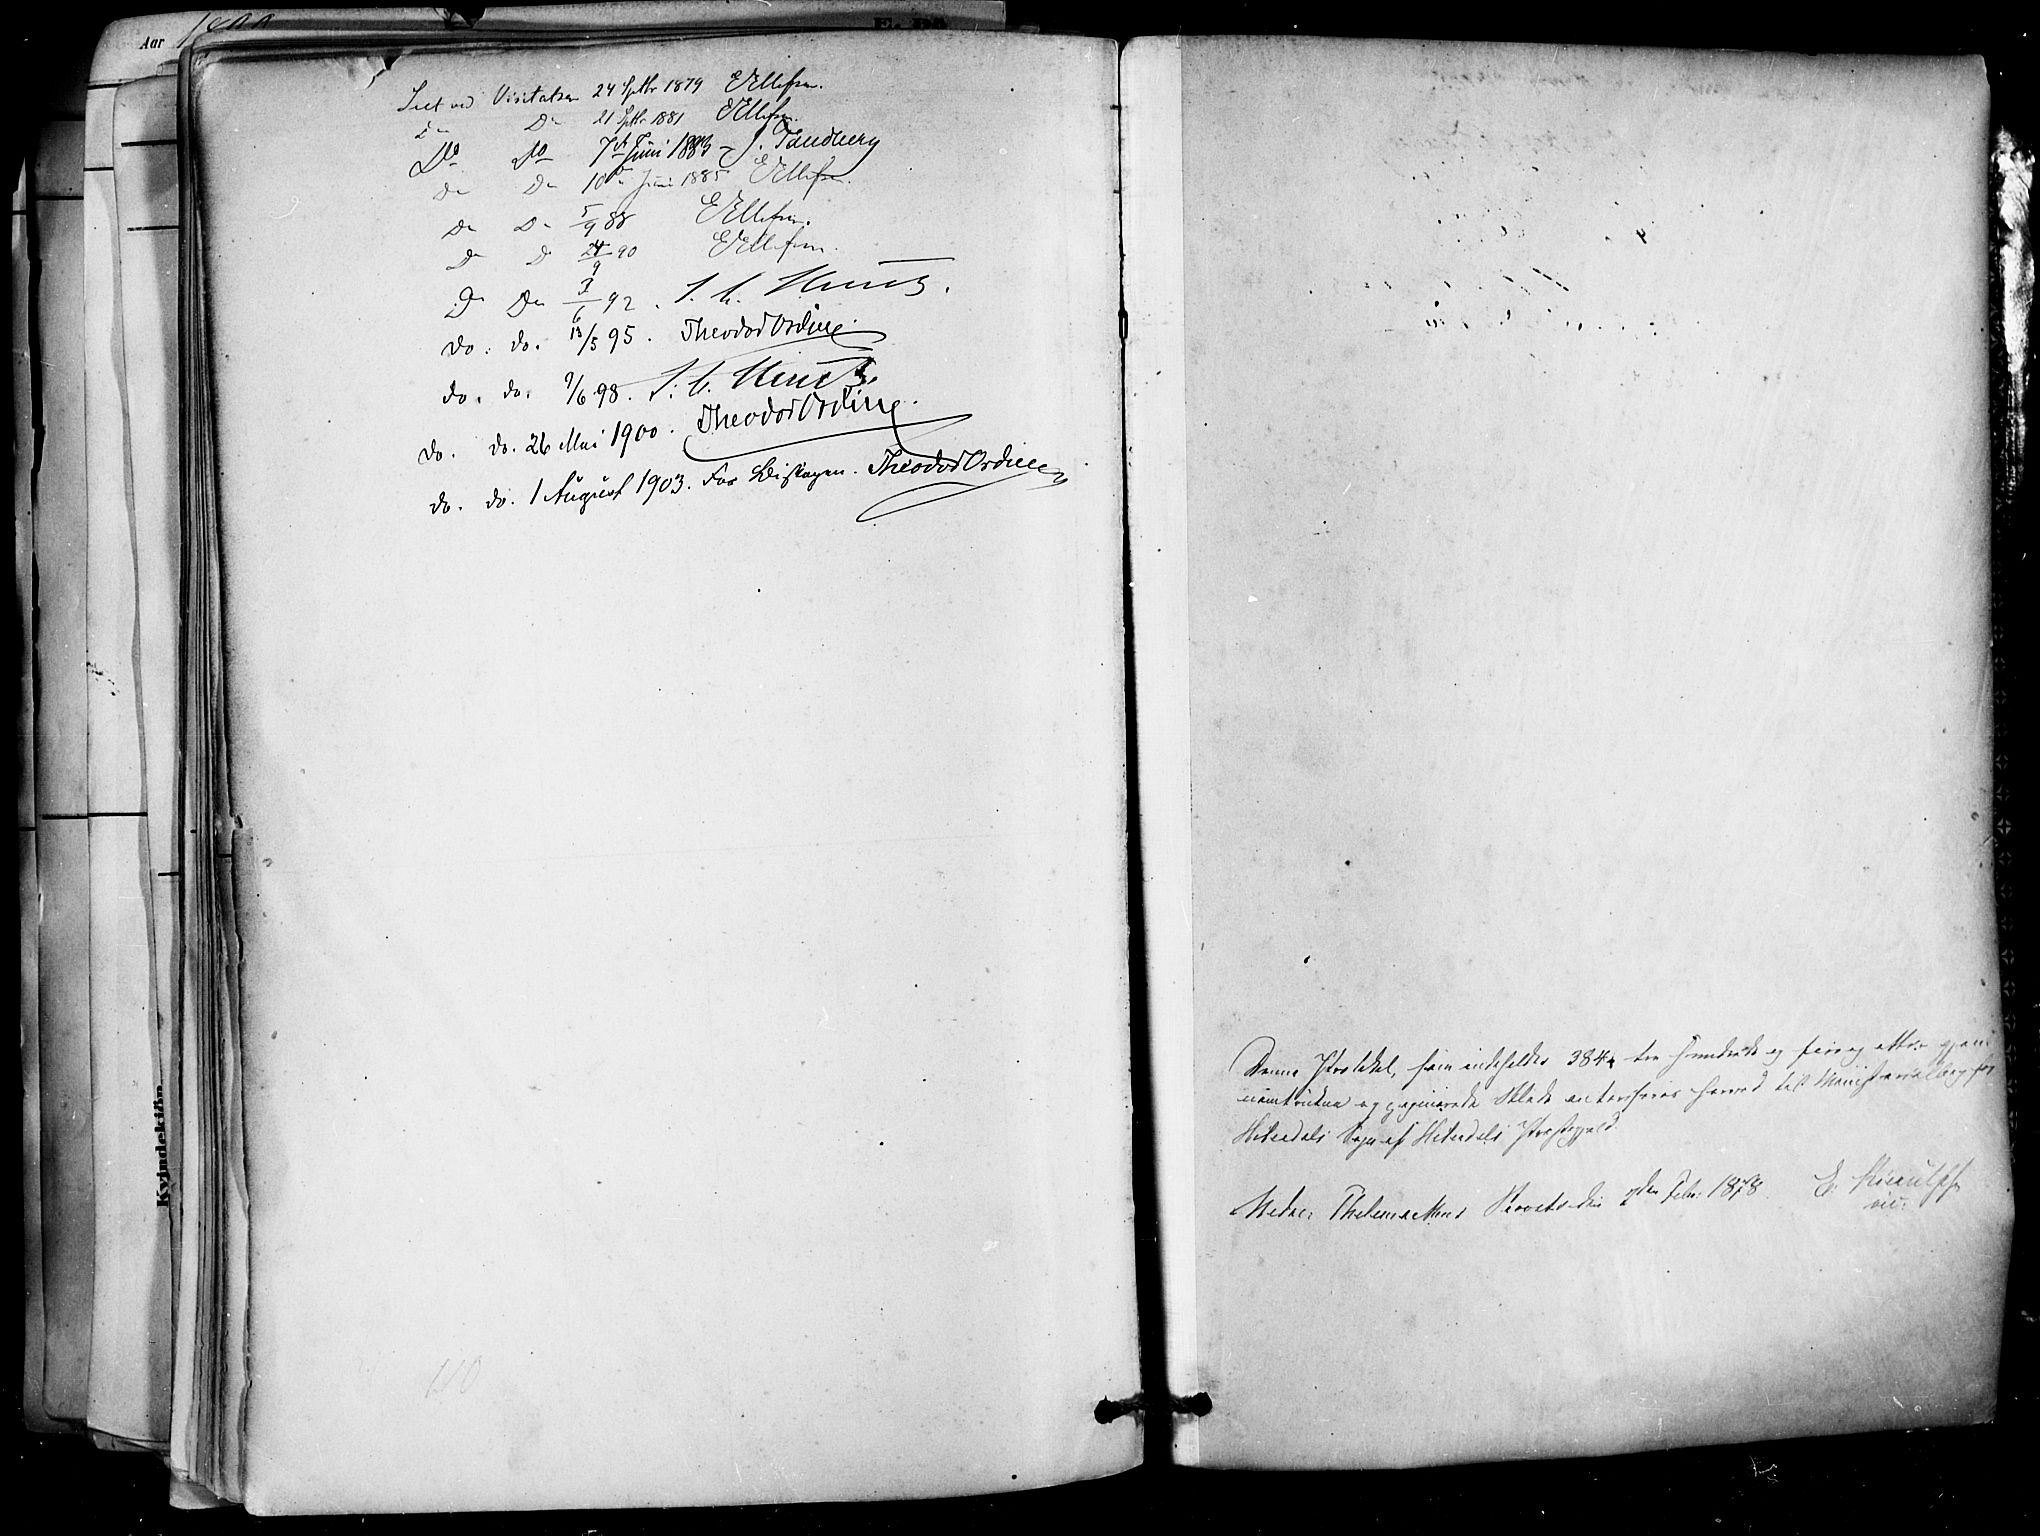 Aar
Kvindekjön
Seet ved Visitatsen 24 Septbr 1879 EEllefsen.
Do Do 21 Septbr 1881 EEllefsen.
Do Do 7de Juni 1883 J. Tandberg
Do Do 10de Juni 1885 EEllefsen.
Do Do 5/9 88 EEllefsen.
Do Do 24/9 90 EEllefsen.
Do Do 3/6 92. J. C. Heuch.
Do. Do. 13/5 95. Theodor Ording.
do. do. 9/6 98. J. C. Heuch.
do. do. 26 Mai 1900. Theodor Ording.
do. do. 1 August 1903. For Biskopen. Theodor Ording
110
Denne Protokol, som indeholder 384, tre Hundrede og fire og otti gjen-
nemtrukne og paginerede Blade autoriseres herved til Ministerialbog for
Hiterdals Sogn af Hiterdals Præstegjæld.
Nedre Thelemarkens Provsti den Febr. 1878 E.